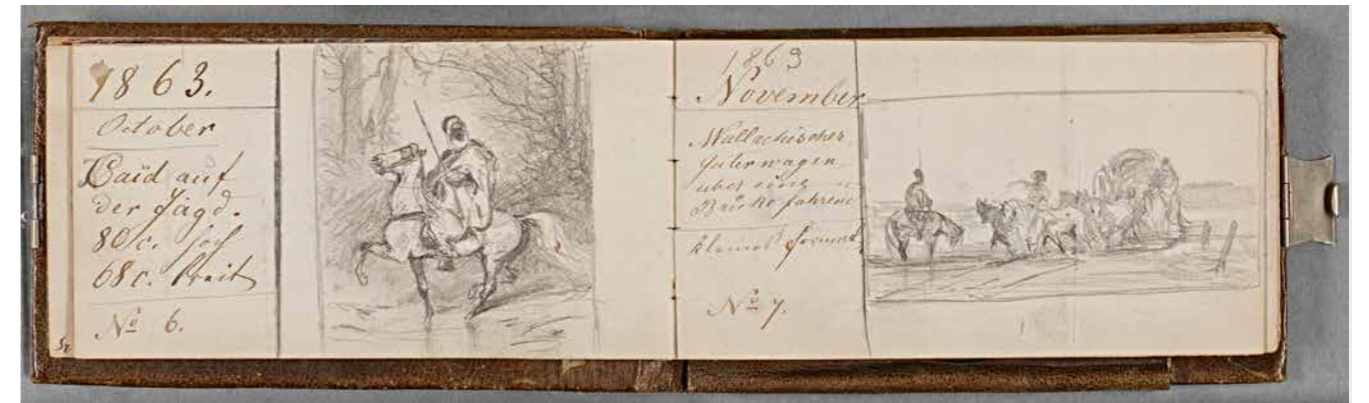 1863.
October
Caïd auf
der Jagd.
80 c. hoch
68 c. breit
No 6.
1863
November
Wallachischer
über eine
Brücke fahrend
kleines Format
No 7.